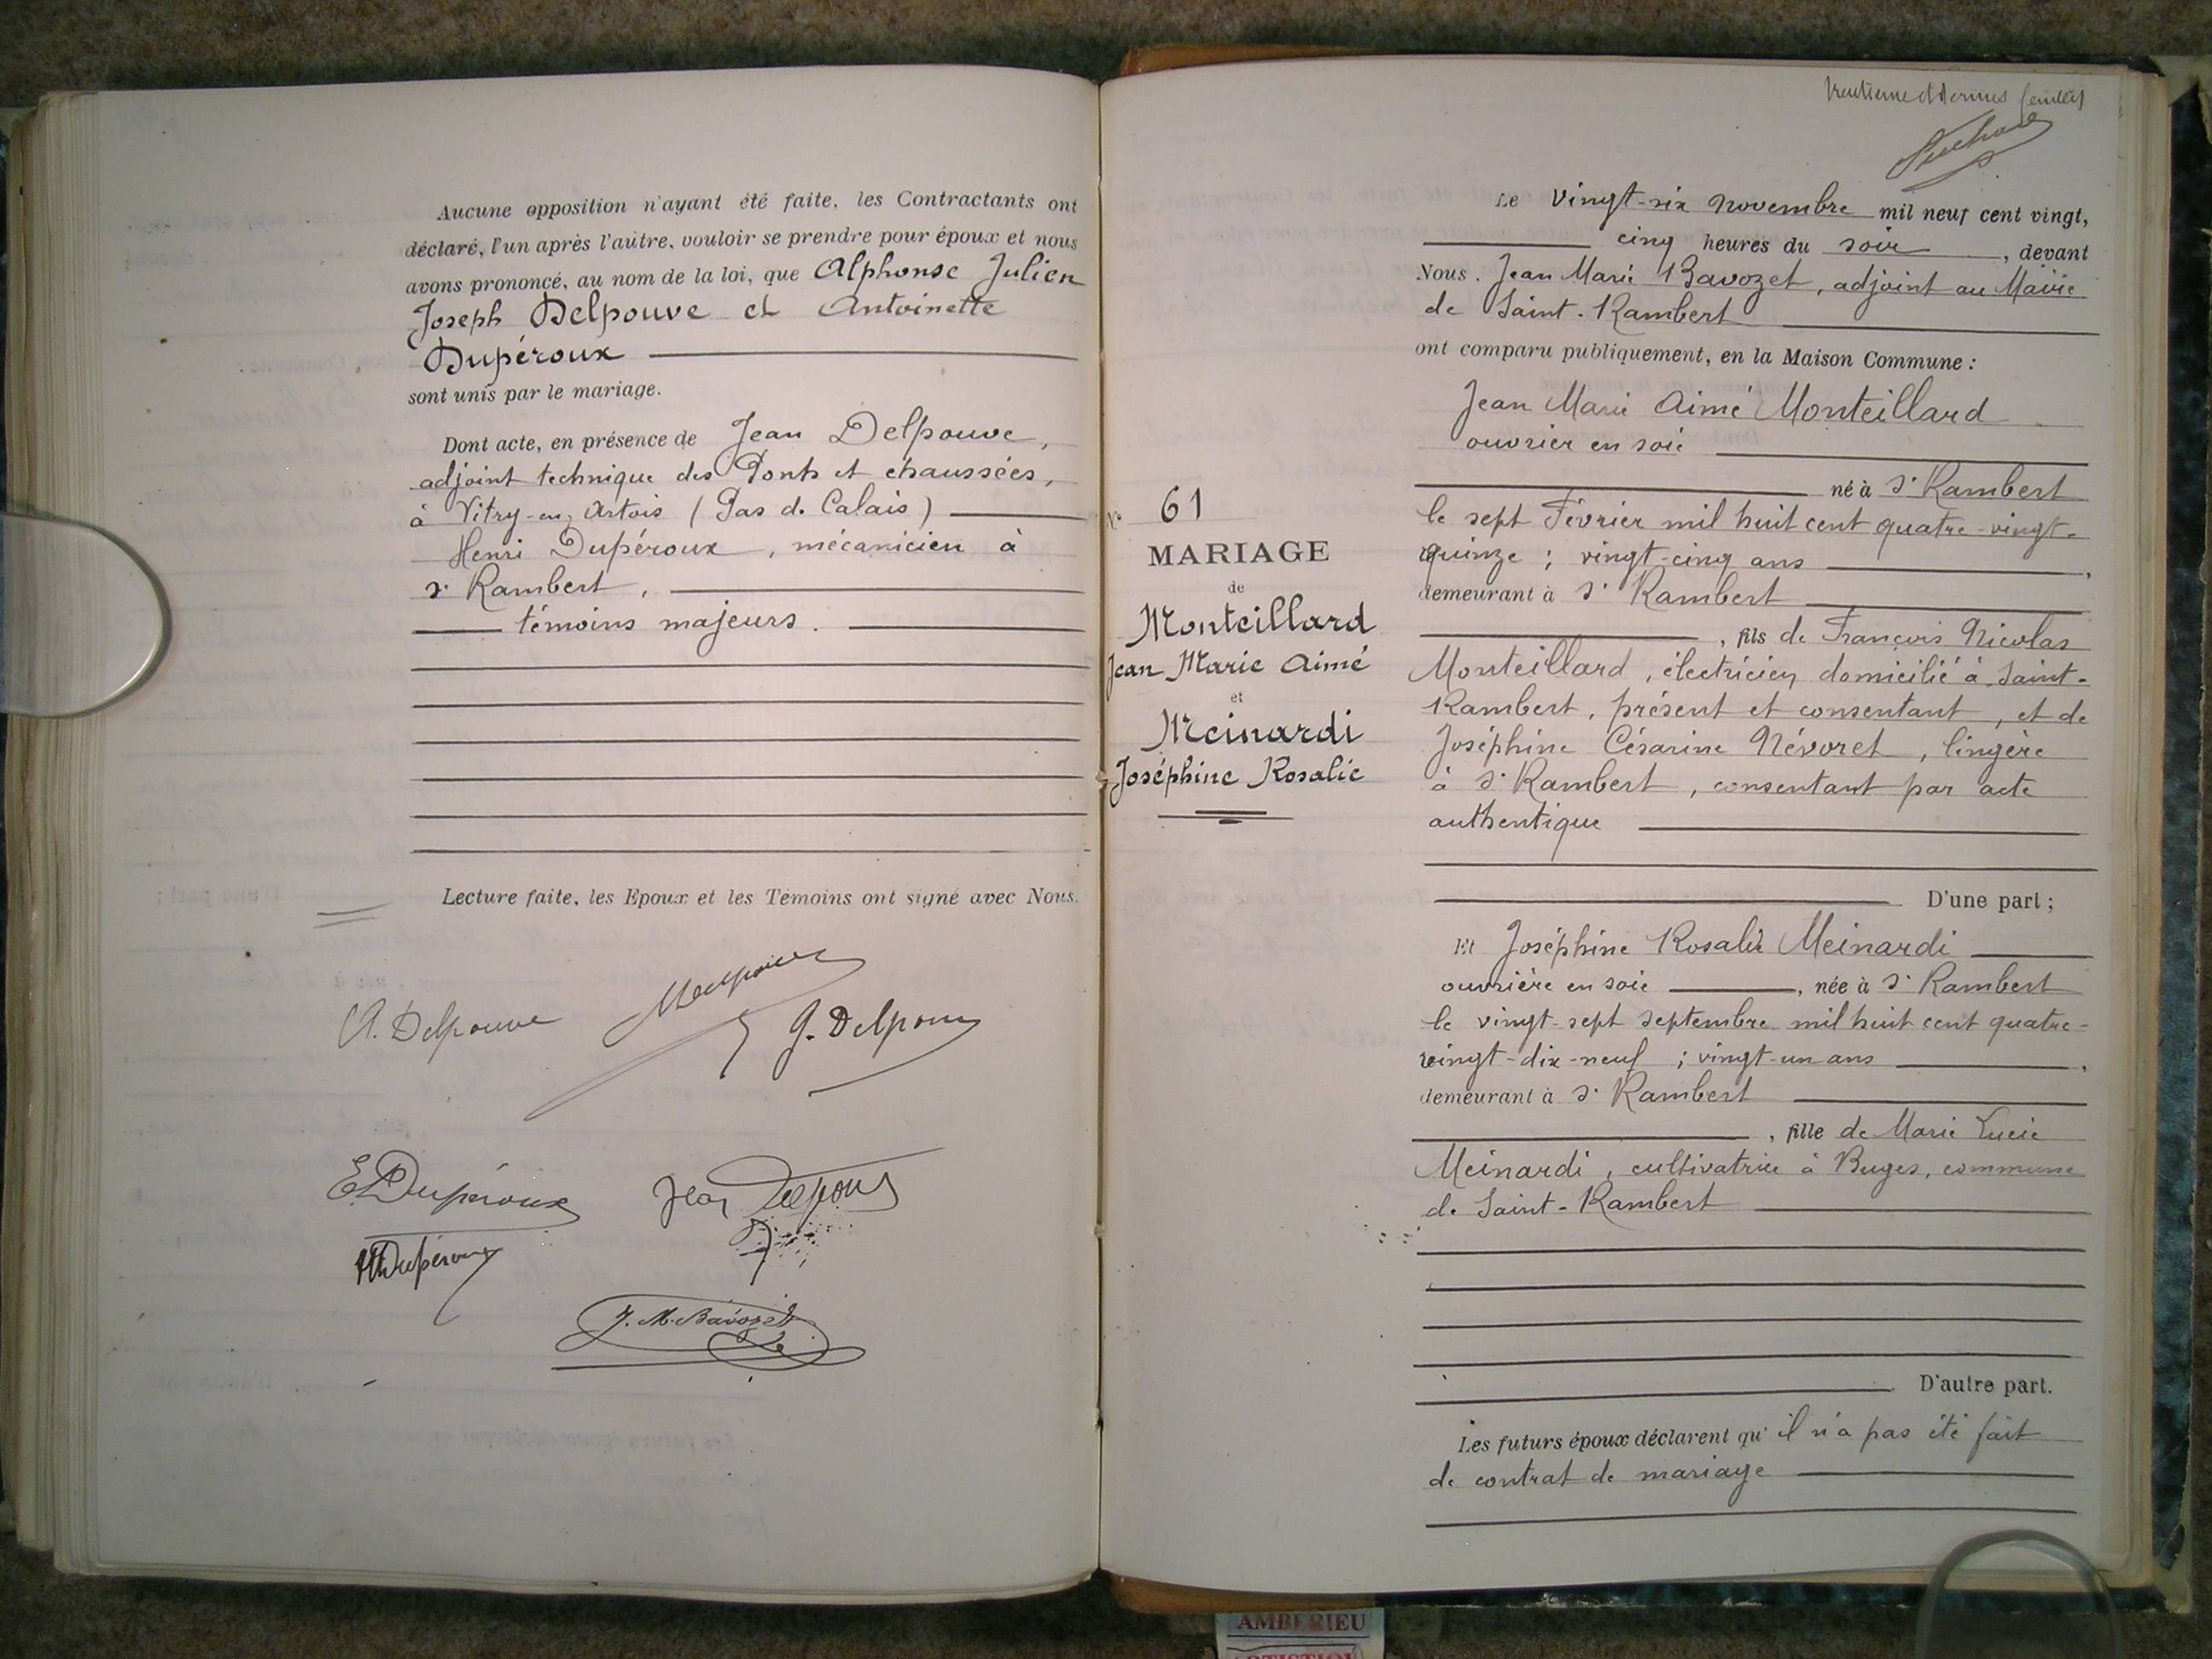 Aucune opposition n'ayant été faite, les Contractants ont
déclaré, l'un après l'autre, vouloir se prendre pour époux et nous
avons prononcé, au nom de la loi, que Alphonse Julien
Joseph Delpouve et Antoinette
Dupéroux
sont unis par le mariage.
Dont acte, en présence de Jean Delpouve,
adjoint technique des Ponts et chaussées,
à Vitry-en-Artois (Pas de Calais)
Henri Dupéroux, mécanicien à
St Rambert,
témoins majeurs.
Lecture faite, les Epoux et les Témoins ont signé avec Nous.
A. Delpouve
J. Delpouve
E. Dupéroux
Jean Delpouve
H Dupéroux
J. M. Bavozet
N° 61
MARIAGE
de
Monteillard
Jean Marie Aimé
et
Meinardi
Joséphine Rosalie
Le vingt-six novembre mil neuf cent vingt,
cinq heures du soir, devant
Nous. Jean Marie Bavozet, adjoint au Maire
de Saint-Rambert
ont comparu publiquement, en la Maison Commune :
Jean Marie Aimé Monteillard
ouvrier en soie
né à St Rambert
le sept Février mil huit cent quatre-vingt-
quinze ; vingt-cinq ans,
demeurant à St Rambert
, fils de François Nicolas
Monteillard, électricien domicilié à Saint-
Rambert, présent et consentant, et de
Joséphine Césarine Névoret, lingère
à St Rambert, consentant par acte
authentique
D'une part ;
Et Joséphine Rosalie Meinardi
ouvrière en soie, née à St Rambert
le vingt-sept septembre mil huit cent quatre-
vingt-dix-neuf ; vingt-un ans,
demeurant à St Rambert
, fille de Marie Lucie
Meinardi, cultivatrice à Buges, commune
de Saint-Rambert
D'autre part.
Les futurs époux déclarent qu'il n'a pas été fait
de contrat de mariage
AMBERIEU